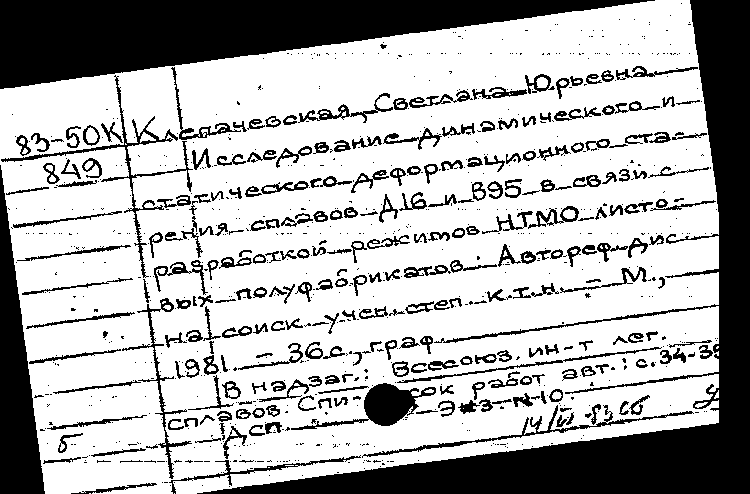 83-50К Клепачевская, Светлана Юрьевна
849 Исследование динамического и
статического деформационного ста-
рения сплавов Д16 и В95 в связи с
разработкой режимов НТМО листо-
вых полуфабрикатов: Автореф. дис.
на соиск. учен. степ. к.т.н. – М.,
1981. – 36 с., граф.
В надзаг.: Всесоюз. ин-т лег.
сплавов. Спи- сок работ авт.: с.34-36
ДСП Экз. №10.
б 14/VI-83